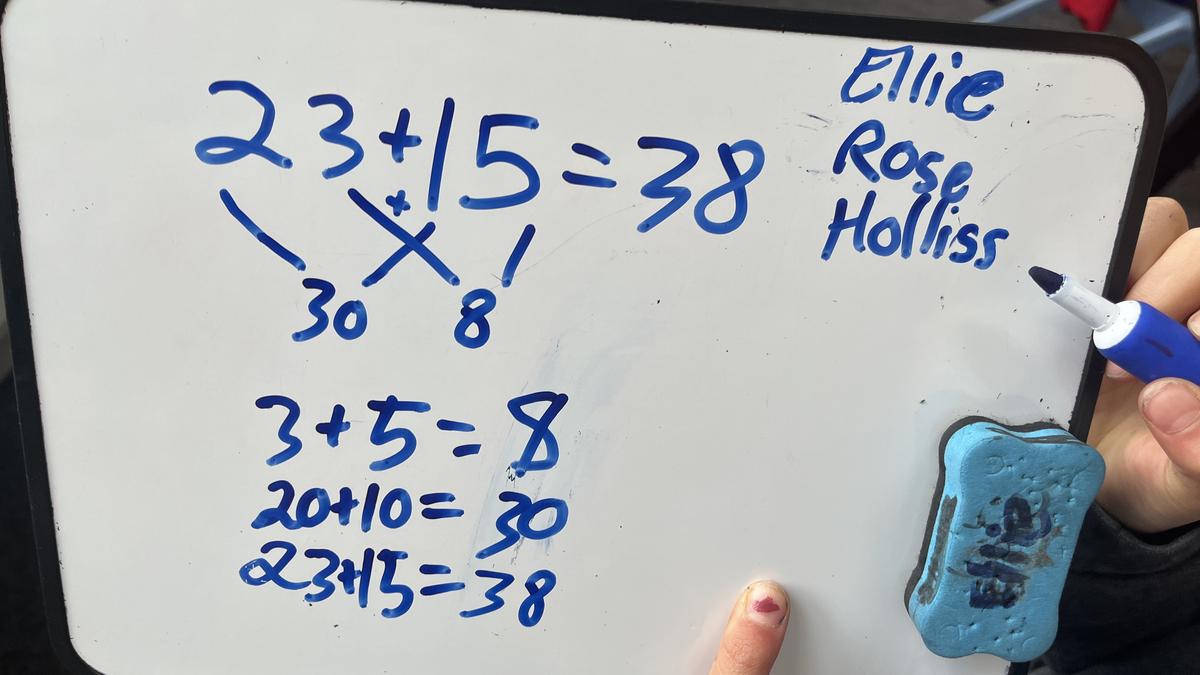 23+15=38
+
30 8
3+5=8
20+10=30
23+15=38
Ellie
Rose
Holliss
Ellie